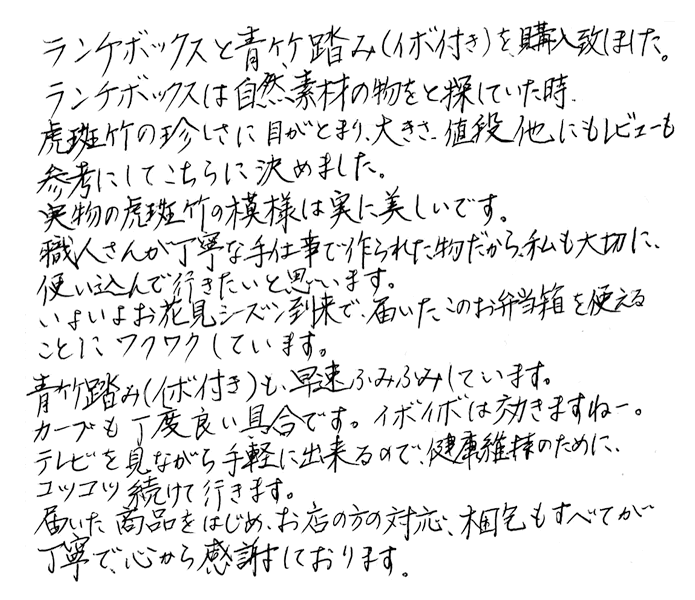 ランチボックスと青竹踏み(イボ付き)を、購入致しました。
ランチボックスは自然素材の物をと探していた時、
虎斑竹の珍しさに目がとまり、大きさ、値段他にもレビューも
参考にしてこちらに決めました。
実物の虎斑竹の模様は実に美しいです。
職人さんが丁寧な手仕事で作られた物だから、私も大切に、
使い込んで行きたいと思います。
いよいよお花見シーズン到来で、届いたこのお弁当箱を使える
ことにワクワクしています。
青竹踏み(イボ付き)も、早速ふみふみしています。
カーブも丁度良い具合です。イボイボは効きますねー。
テレビを見ながら手軽に出来るので、健康維持のために、
コツコツ続けて行きます。
届いた商品をはじめ、お店の方の対応、梱包もすべてが
丁寧で、心から感謝しております。